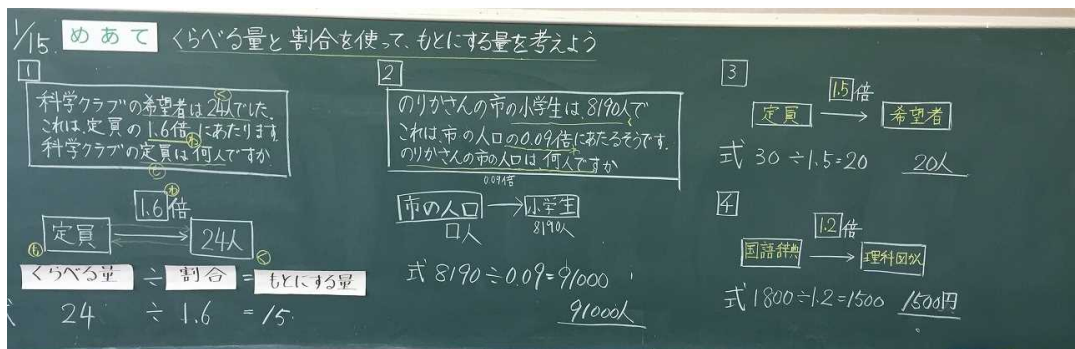 1/15. めあて くらべる量と割合を使って、もとにする量を考えよう
1
科学クラブの希望者は24人でした。
く
これは、定員の1.6倍にあたります
わ
科学クラブの定員は何人ですか
も
わ
1.6倍
定員 → 24人
も く
くらべる量 ÷ 割合 = もとにする量
24 ÷ 1.6 = 15
2
のりかさんの市の小学生は、8190人で
く
これは、市の人口の0.09倍にあたるそうです。
わ
のりかさんの市の人口は何人ですか
0.09倍
市の人口 → 小学生
□人 8190人
式 8190÷0.09=91000
91000人
3
1.5倍
定員 → 希望者
式 30÷1.5=20 20人
4
1.2倍
国語辞典 → 理科図かん
式 1800÷1.2=1500 1500円